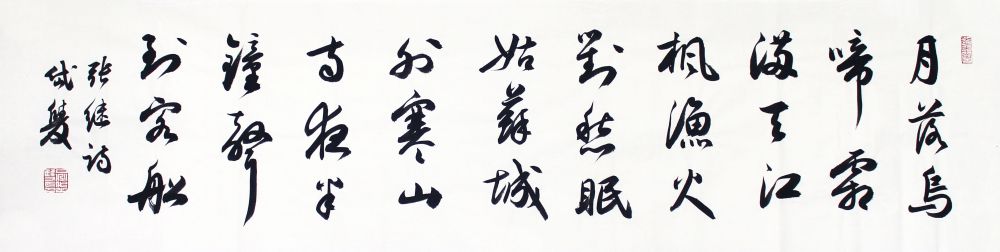 月落烏
啼霜
滿天江
楓漁火
對愁眠
姑蘇城
外寒山
寺夜半
鐘聲
到客船
张继诗
岱